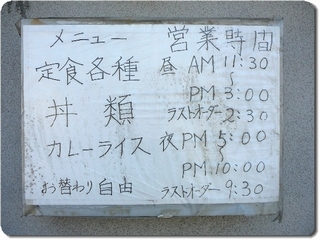 メニュー
定食各種
丼類
カレーライス
お替わり自由
営業時間
昼 AM 11:30
〜
PM 3:00
ラストオーダー 2:30
夜 PM 5:00
〜
PM 10:00
ラストオーダー 9:30